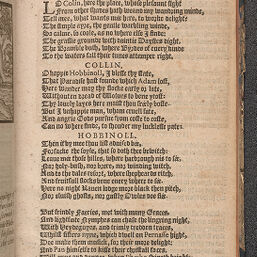 LO Colin, here the place, whose pleasant sight
From other shades hath weand my wandring minde,
Tell mee, what wants mee here, to worke delight?
The simple ayre, the gentle warbling winde,
So calme, so coole, as no where else I finde:
The grassie grounde with daintie Daysies dight,
The Bramble bush, where Byrdes of every kinde
To the waters fall their tunes attemper right.
COLLIN.
O happie Hobbinoll, I blesse thy state,
That Paradise hast founde which Adam lost,
Here wander may thy flocke early or late,
Withouten dread of Wolves to bene ytost:
Thy lovely layes here maist thou freely boste.
But I unhappie man, whom cruell fate,
And angrie Gods pursue from coste to coste,
Can no where finde, to shroder my lucklesse pate.
HOBBINOLL.
Then if by mee thou list advised bee,
Forsake the soyle, that so doth thee bewitch:
Leave mee those hilles, where harbrough nis to see,
Nor holy-bush, nor brere, nor winding witch,
And to the dales resort, where shepheards ritch,
And fruitfull flocks bene every where to see:
Here no night Ravens lodge more black then pitch,
Nor elvish ghosts, nor gastly Owles doo flee.
But frindly Faeries, met with many Graces
And lightfoote Nymphes can chase the lingring night,
With Heydeguyes, and trimly trodden traces,
Whilst sisters nyne, which dwell on Pernasse hight,
Doe make them musick, for their more delight:
And Pan himselfe to kisse their christall faces,